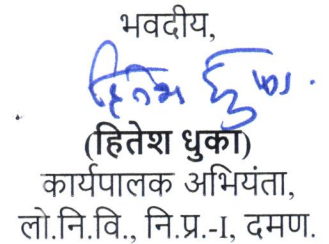 भवदीय,
हितेश धुका
(हितेश धुका)
कार्यपालक अभियंता,
लो.नि.वि., नि.प्र.-I, दमण.